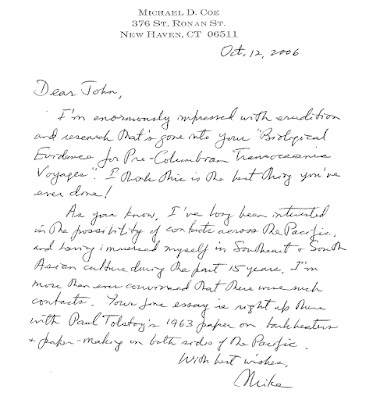 MICHAEL D. COE
376 ST. RONAN ST.
NEW HAVEN, CT 06511
Oct. 12, 2006
Dear John,
I'm enormously impressed with erudition
and research that's gone into your "Biological
Evidence for Pre-Columbian Transoceanic
Voyages". I think this is the best thing you've
ever done!
As you know, I've long been interested
in the possibility of contacts across the Pacific,
and having immersed myself in Southeast + South
Asian culture during the past 15 years, I'm
more than ever convinced that there were such
contacts. Your fine essay is right up there
with Paul Tolstoy's 1963 paper on barkbeaters
+ paper-making on both sides of the Pacific.
With best wishes,
Mike